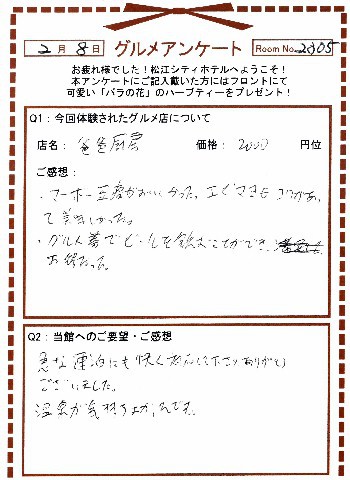 2月8日 グルメアンケート Room No. 2305
お疲れ様でした！松江シティホテルへようこそ！
本アンケートにご記入戴いた方にはフロントにて
可愛い「バラの花」のハーブティーをプレゼント！
Q1：今回体験されたグルメ店について
店名： 爸爸厨房 価格： 2000 円位
ご感想：
・マーボー豆腐がおいしかった。エビマヨもコクがあっ
て美味しかった。
・グルメ券でビールを飲むことができ、
お得だった。
Q2：当館へのご要望・ご感想
急な連泊にも快く対応して下さりありがとう
ございました。
温泉が気持ちよかったです。